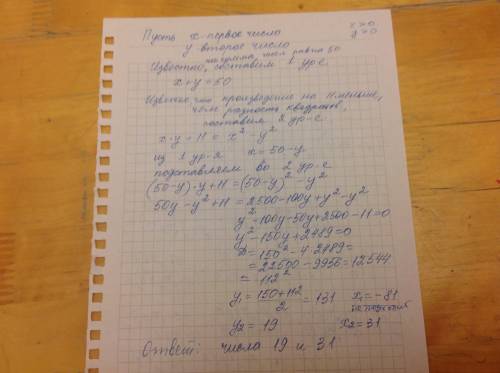 Пусть x - первое число x>0
y второе число y>0
Известно, что сумма чисел равна 50
составим 1 ур-е
x+y=50
Известно что произведение на 11 меньше,
чем разность квадратов,
составим 2 ур-е
x·y+11 = x² - y²
из 1 ур-я x=50-y
подставляем во 2 ур-е
(50-y)·y+11=(50-y)² - y²
50y-y²+11=2500-100y+y²-y²
y²-100y-50y+2500-11=0
y²-150y+2489=0
D=150²-4·2489=
=22500-9956=12544
=112²
y₁=150+112/2=131 x₁=-81
не подходит
y₂=19 x₂=31
Ответ: числа 19 и 31